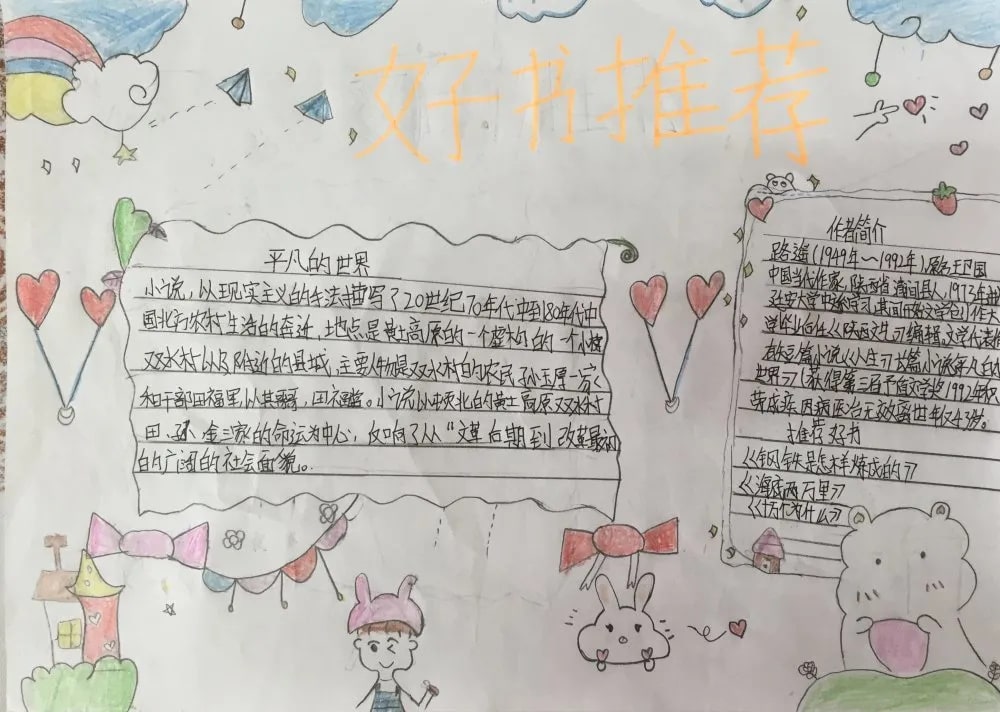 好书推荐
平凡的世界
小说,以现实主义的手法描写了20世纪70年代中到80年代中
国北方农村生活的奋进,地点是黄土高原的一个虚构的一个小村
双水村以及附近的县城,主要人物是双水村的农民孙玉厚一家
和干部田福里以其哥哥,田福堂。小说以中央北的黄土高原双水村
田、孙 金三家的命运为中心,反响了从“文革后期到改革最初
的广阔的社会面貌。
作者简介
路遥(1949年~1992年)原名王卫国
中国当代作家,陕西省清涧县人,1973年进
延安大学中
学毕业后任《陕西文艺》编辑,文学代表作
表长篇小说《人生》长篇小说《平凡的
世界》(获得第三届矛盾文学奖1992年积
劳成疾因病医治无效离世年仅43岁。
推荐好书
《钢铁是怎样炼成的》
《海底两万里》
《十万个为什么》